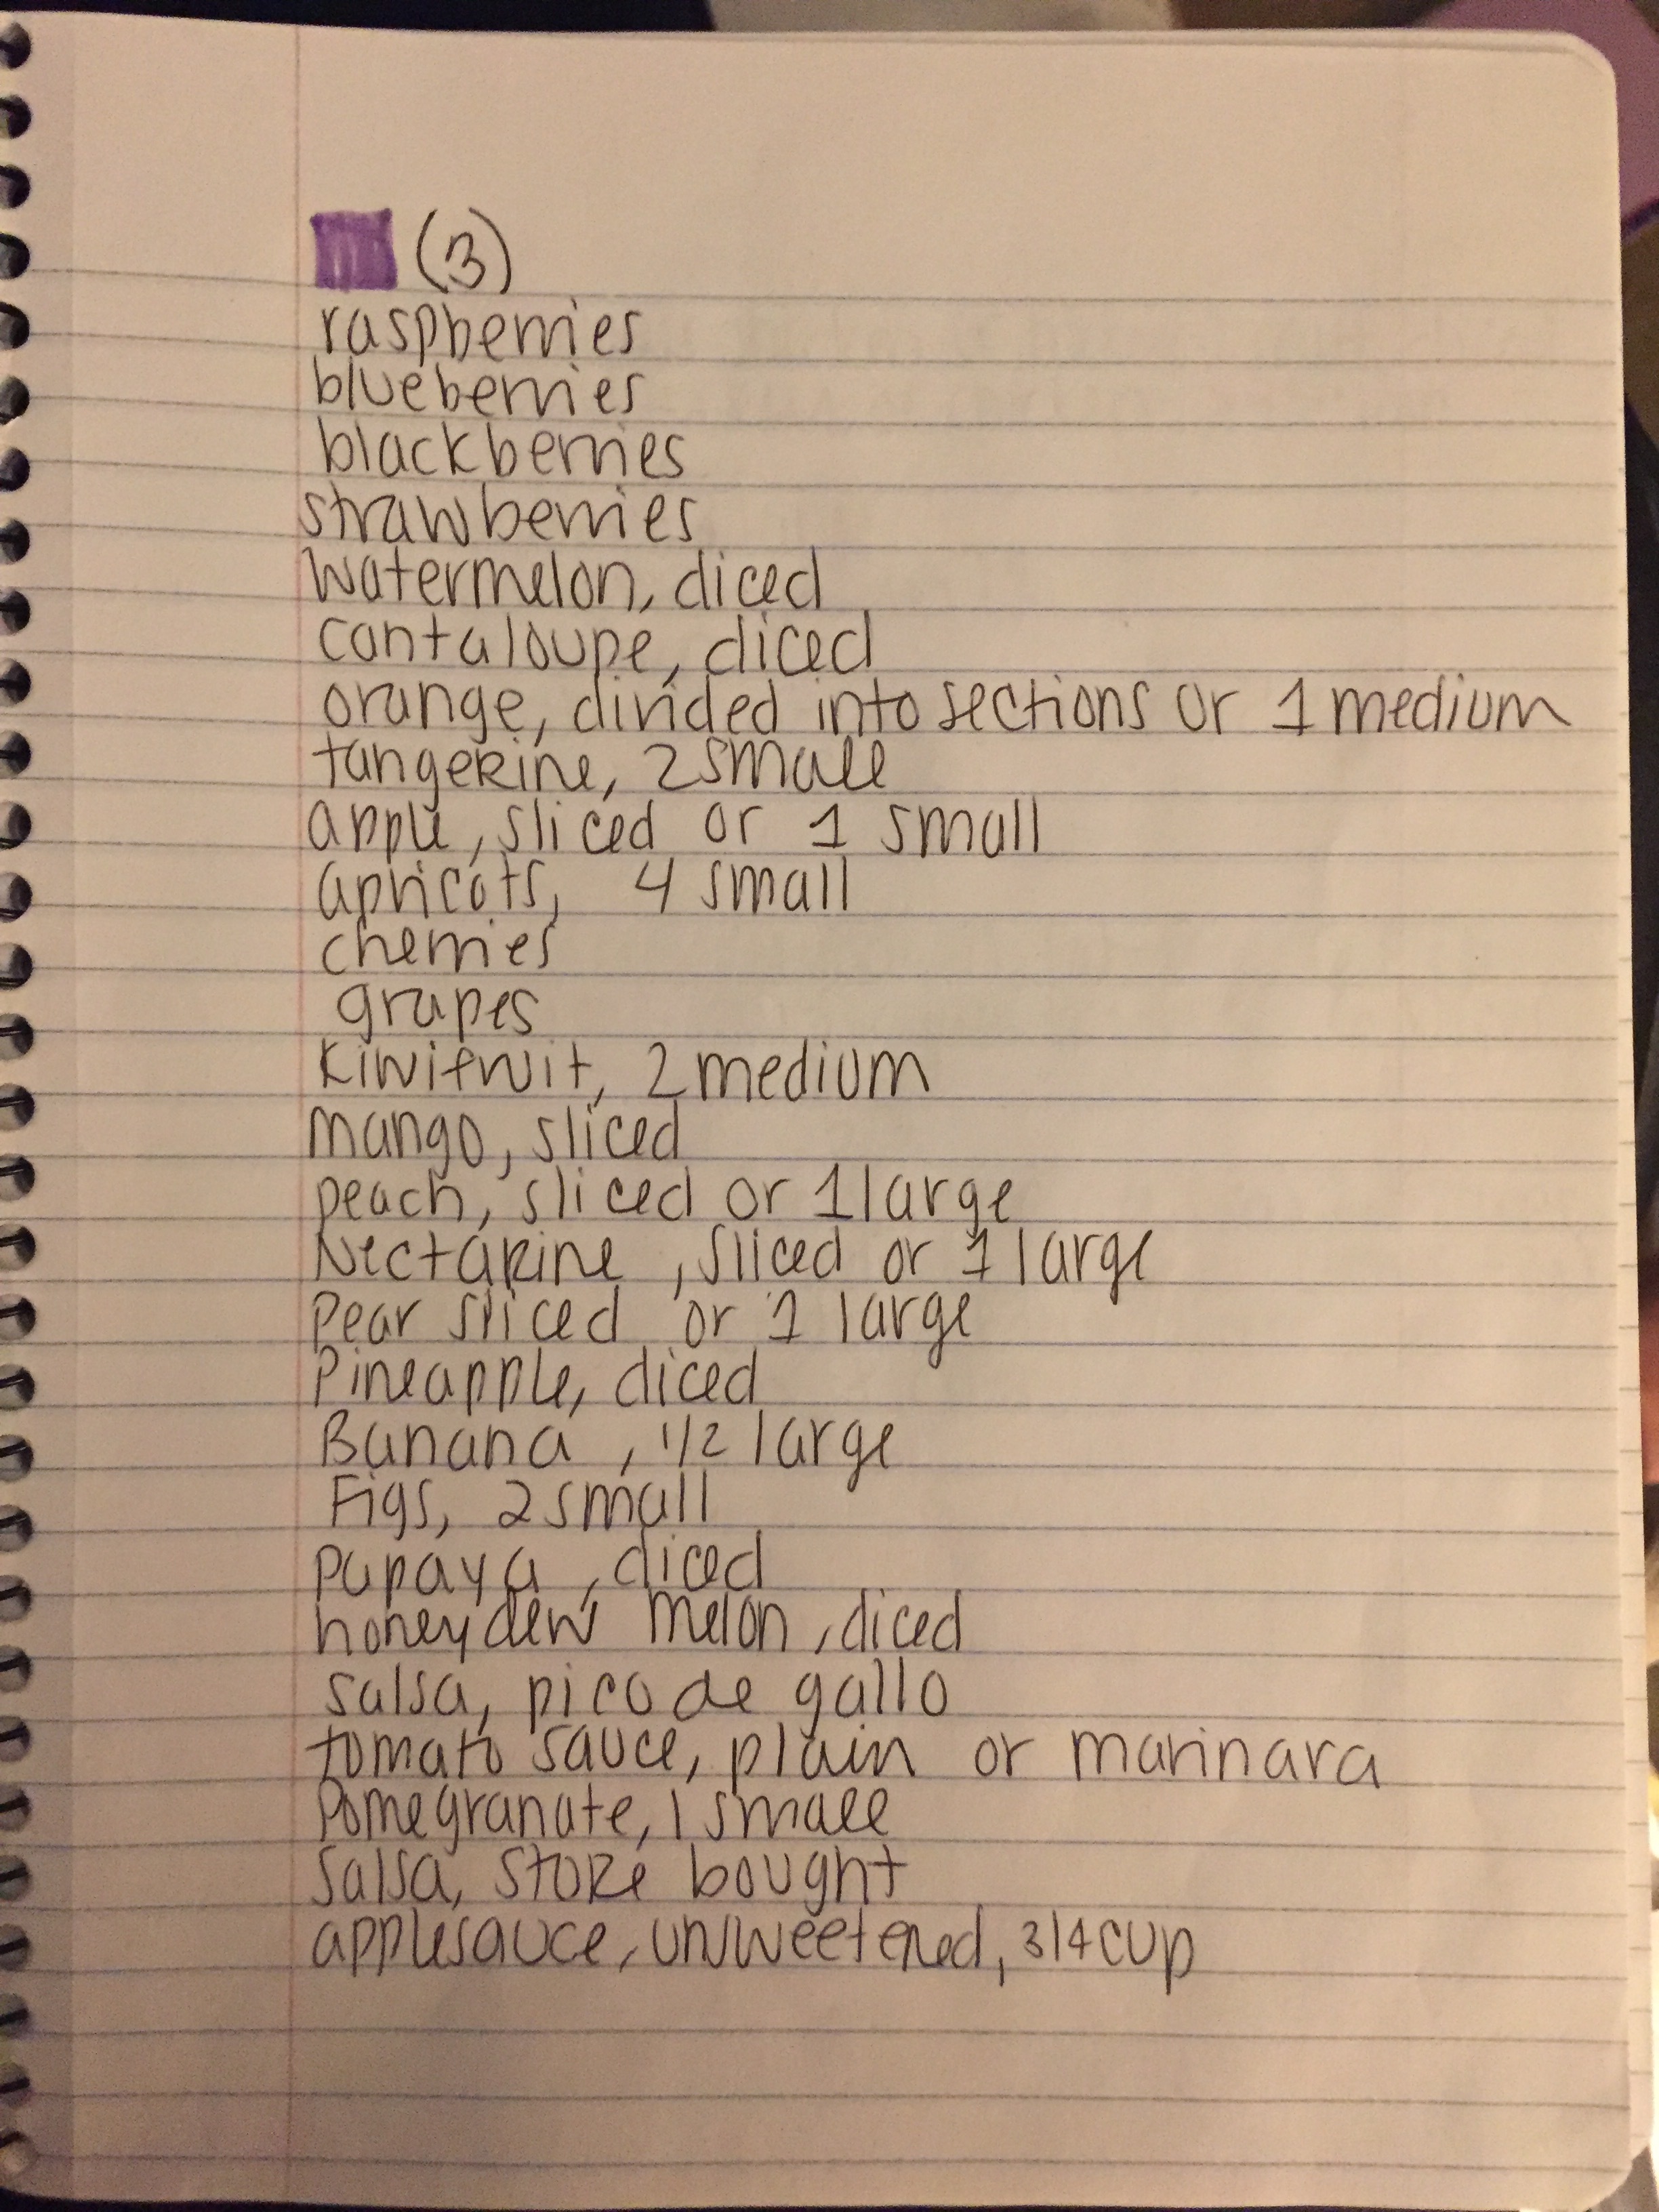 (3)
raspberries
blueberries
blackberries
strawberries
watermelon, diced
cantaloupe, diced
orange, divided into sections or 1 medium
tangerine, 2 small
apple, sliced or 1 small
apricots, 4 small
cherries
grapes
Kiwifruit, 2 medium
mango, sliced
peach, sliced or 1 large
Nectarine, sliced or 1 large
Pear sliced or 1 large
Pineapple, diced
Banana, 1/2 large
Figs, 2 small
papaya, diced
honeydew melon, diced
salsa, pico de gallo
tomato sauce, plain or marinara
Pomegranate, 1 small
Salsa, store bought
applesauce, unsweetened, 3/4 cup